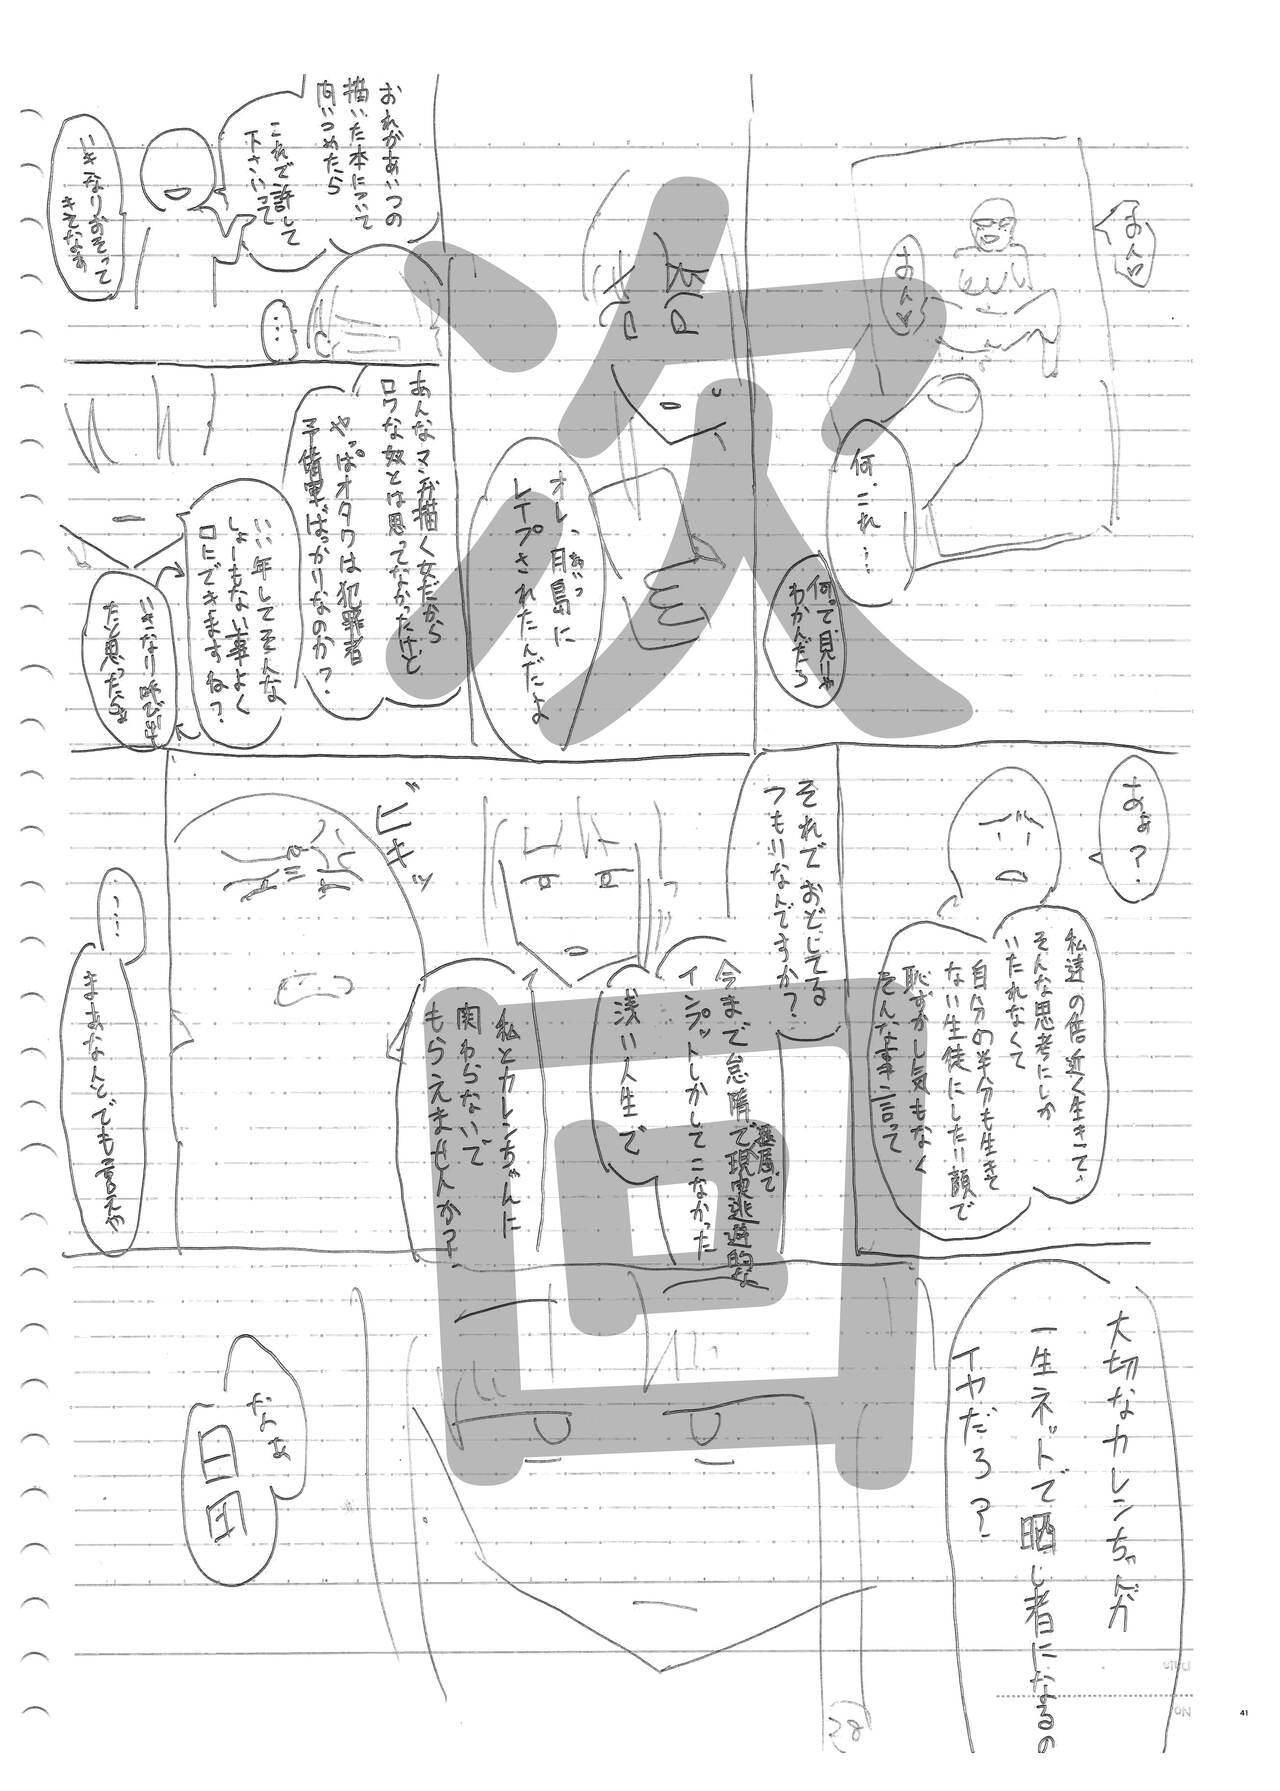 あんっ♡
あんっ♡
何、これ…
何って見りゃ
わかんだろ
オレっ
月島に
レイプされたんだよ
おれがあいつの
描いた本について
問いつめたら
これで許して
下さいって
いきなりおそって
きてなぁ
…
あんなマンガ描く女だから
ロクな奴とは思ってなかったけど
やっぱオタクは犯罪者
予備軍ばっかりなのか？
いい年してそんな
しょーもない事よく
口にできますね？
いきなり呼び出し
たと思ったらぁ
あぁ？
私達の倍近く生きて、
そんな思考にしか
いたれなくて
自分の半分も生きて
ない生徒にしたり顔で
恥ずかし気もなく
そんな事言って
それでおどしてる
つもりなんですか？
今まで怠惰で現実逃避的な
インプットしかしてこなかった
浅い人生で
私とカレンちゃんに
関わらないで
もらえませんか？
ビキッ
っ…
まぁなんとでも言えや
大切なカレンちゃんが
一生ネットで晒し者になるの
イヤだろ？
なぁ
日田
次
回
38
No.
41